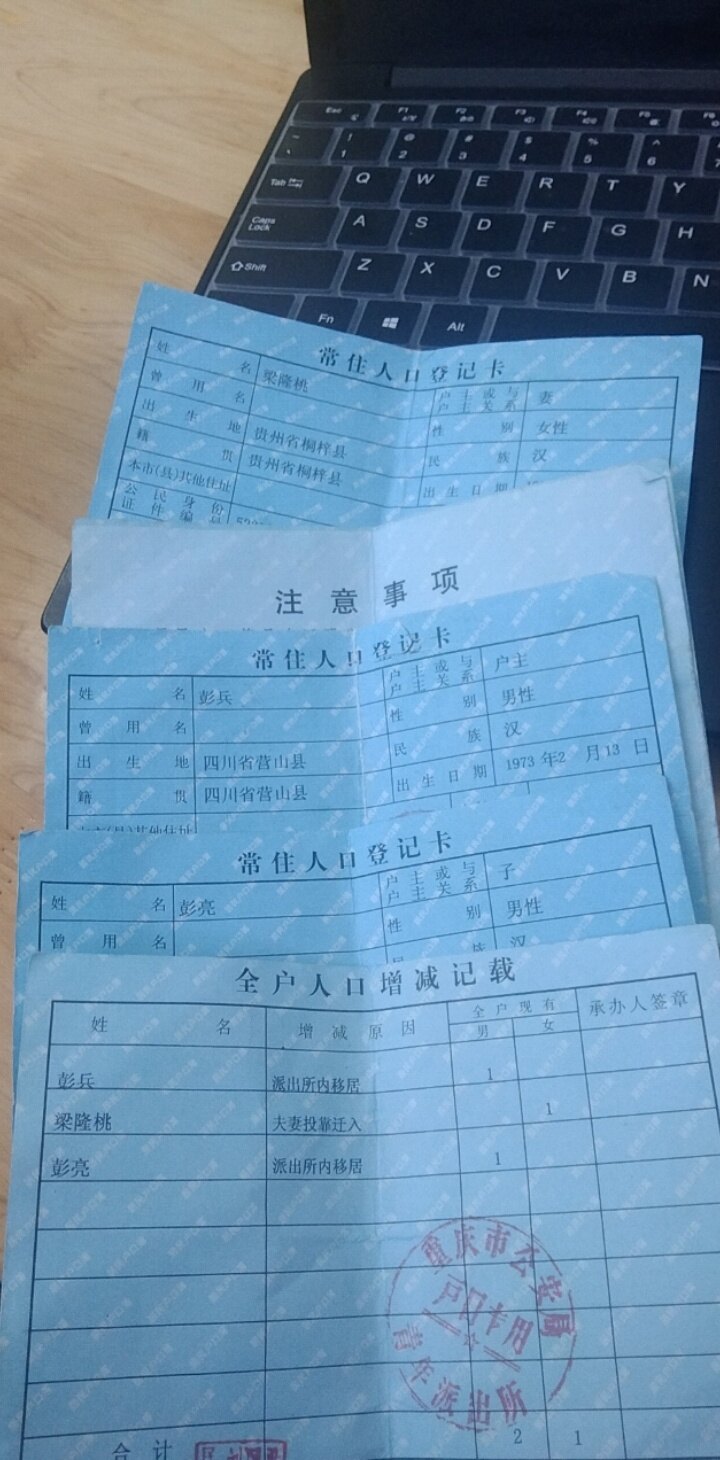 Esc F1 F2 F3 F4 F5 F6
~ ! @ # $ % ^
1 2 3 4 5 6 7
Tab Q W E R T Y
Caps Lock A S D F G H
Shift Z X C V B N
Fn Alt
常住人口登记卡
姓名 梁隆桃 户主或与户主关系 妻
曾用名 性别 女性
出生地 贵州省桐梓县 民族 汉
籍贯 贵州省桐梓县 出生日期
本市(县)其他住址
公民身份证件编号
注意事项
常住人口登记卡
姓名 彭兵 户主或与户主关系 户主
曾用名 性别 男性
出生地 四川省营山县 民族 汉
籍贯 四川省营山县 出生日期 1973 年2 月13 日
本市(县)其他住址
常住人口登记卡
姓名 彭亮 户主或与户主关系 子
曾用名 性别 男性
民族 汉
全户人口增减记载
姓名 增减原因 全户现有 承办人签章
男 女
彭兵 派出所内移居 1
梁隆桃 夫妻投靠迁入 1
彭亮 派出所内移居 1
重庆市公安局
户口专用
青年派出所
合计 2 1